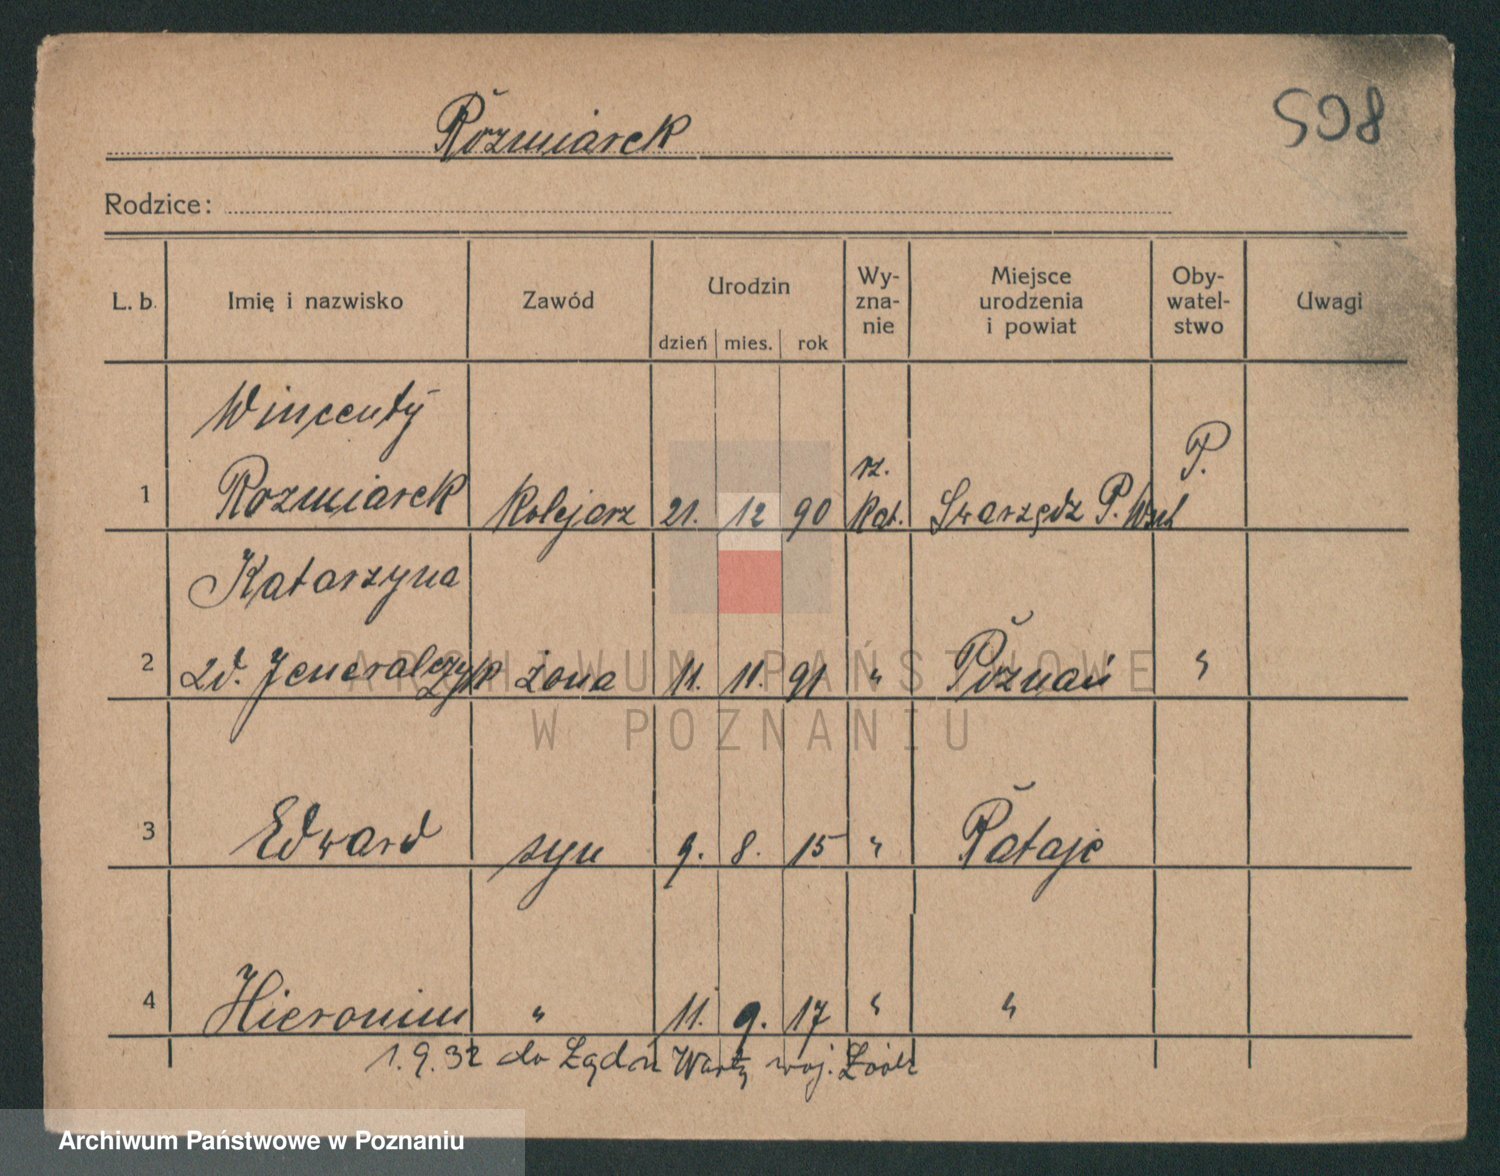 Rozmiarek
598
Rodzice:
L. b. Imię i nazwisko Zawód Urodzin dzień mies. rok Wy-zna-nie Miejsce urodzenia i powiat Oby-watel-stwo Uwagi
Wincenty
1 Rozmiarek Kolejarz 21. 12 90 rz. kat. Swarzędz P. Wsch P.
Katarzyna
2 zd. Jeneralczyk żona 11. 11. 91 " Poznań "
3 Edward syn 9. 8. 15 " Rataje
4 Hieronim " 11. 9. 17 " "
1.9.32 do Warty woj. Łódz
ARCHIWUM PAŃSTWOWE
W POZNANIU
Archiwum Państwowe w Poznaniu